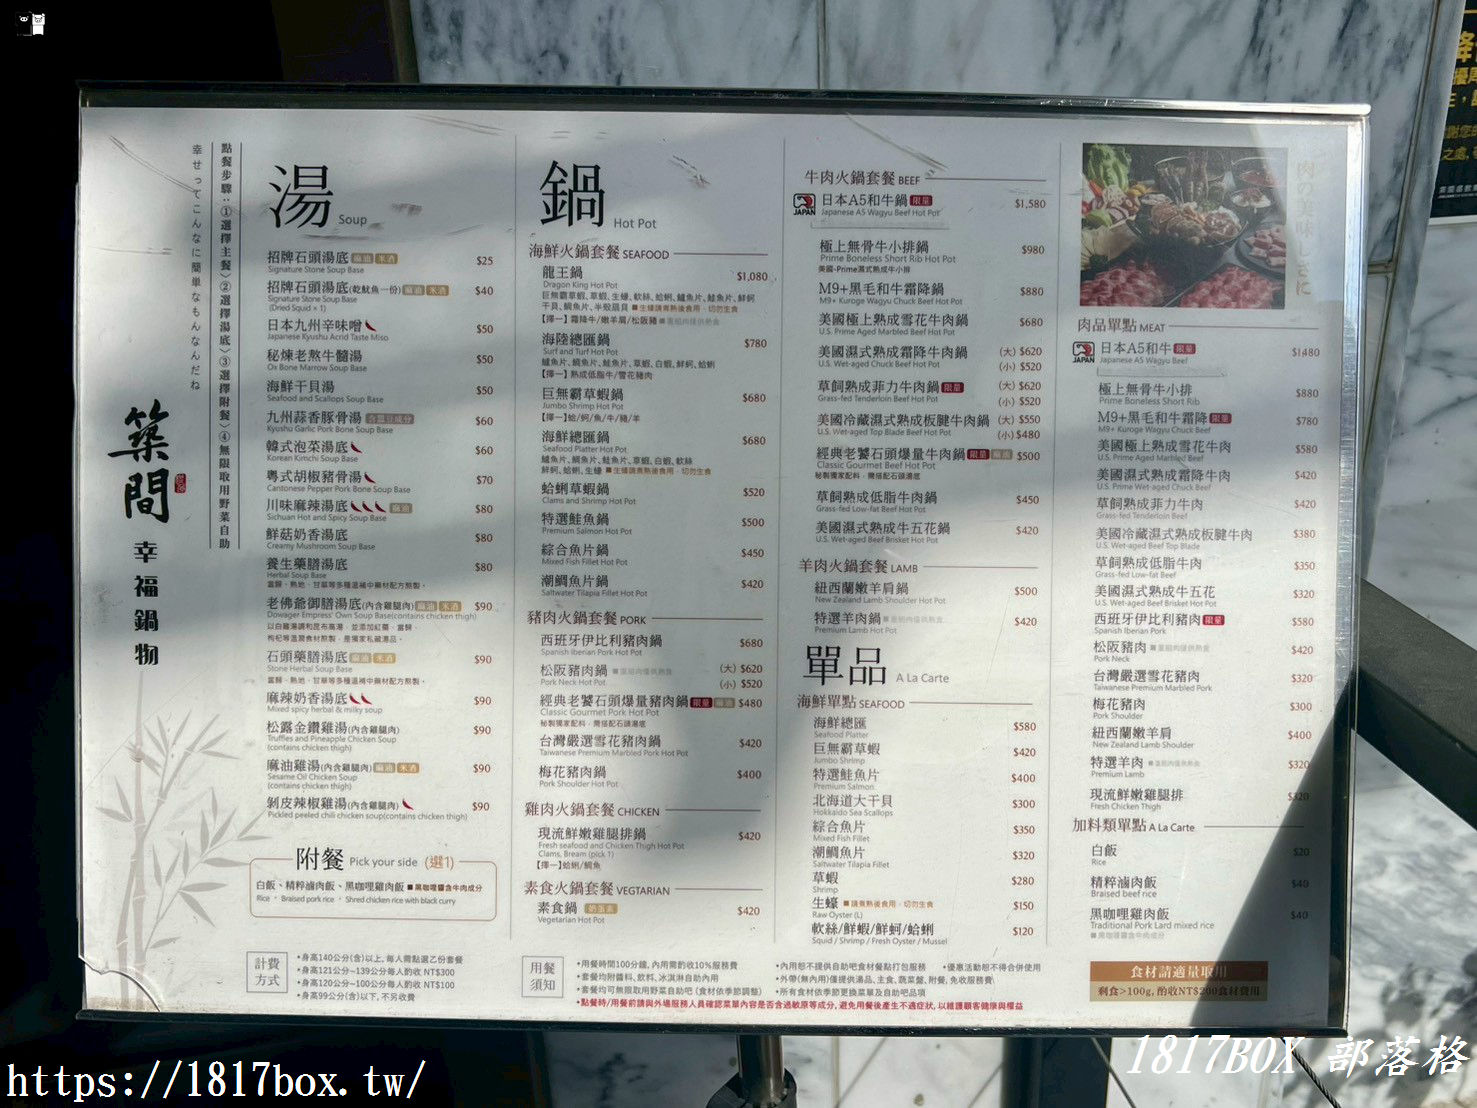 幸せってこんなに簡単なもんなんだね
點餐步驟:①選擇主餐〉②選擇湯底〉③選擇附餐〉④無限取用野菜自助
築間
幸福鍋物
湯 Soup
招牌石頭湯底 麻油 米酒 $25
Signature Stone Soup Base
招牌石頭湯底(乾魷魚一份) 麻油 米酒 $40
Signature Stone Soup Base
(Dried Squid × 1)
日本九州辛味噌 $50
Japanese Kyushu Acrid Taste Miso
秘煉老熬牛髓湯 $50
Ox Bone Marrow Soup Base
海鮮干貝湯 $50
Seafood and Scallops Soup Base
九州蒜香豚骨湯 $60
Kyushu Garlic Pork Bone Soup Base
韓式泡菜湯底 $60
Korean Kimchi Soup Base
粵式胡椒豬骨湯 $70
Cantonese Pepper Pork Bone Soup Base
川味麻辣湯底 麻油 $80
Sichuan Hot and Spicy Soup Base
鮮菇奶香湯底 $80
Creamy Mushroom Soup Base
養生藥膳湯底 $80
Herbal Soup Base
當歸、熟地、甘草等多種溫補中藥材配方熬製。
老佛爺御膳湯底(內含雞腿肉) 麻油 米酒 $90
Dowager Empress' Own Soup Base(contains chicken thigh)
以白雞湯調和昆布高湯,並添加紅棗、當歸、
枸杞等溫潤食材熬製,是獨家私藏湯品。
石頭藥膳湯底 麻油 米酒 $90
Stone Herbal Soup Base
當歸、熟地、甘草等多種溫補中藥材配方熬製。
麻辣奶香湯底 $90
Mixed spicy herbal & milky soup
松露金鑽雞湯(內含雞腿肉) $90
Truffles and Pineapple Chicken Soup
(contains chicken thigh)
麻油雞湯(內含雞腿肉) 麻油 米酒 $90
Sesame Oil Chicken Soup
(contains chicken thigh)
剝皮辣椒雞湯(內含雞腿肉) $90
Pickled peeled chili chicken soup(contains chicken thigh)
附餐 Pick your side (選1)
白飯、精粹滷肉飯、黑咖哩雞肉飯 ■黑咖哩醬含牛肉成分
Rice 、 Braised pork rice 、 Shred chicken rice with black curry
鍋 Hot Pot
海鮮火鍋套餐 SEAFOOD
龍王鍋 $1,080
Dragon King Hot Pot
巨無霸草蝦、草蝦、生蠔、軟絲、蛤蜊、鱸魚片、鮭魚片、鮮蚵
干貝、鯛魚片、半殼扇貝 ■生蠔請煮熟後食用,切勿生食
【擇一】霜降牛/嫩羊肩/松阪豬 ■溫組肉僅供熟食
海陸總匯鍋 $780
Surf and Turf Hot Pot
鱸魚片、鯛魚片、鮭魚片、草蝦、白蝦、鮮蚵、蛤蜊
【擇一】熟成低脂牛/雪花豬肉
巨無霸草蝦鍋 $680
Jumbo Shrimp Hot Pot
【擇一】蛤/蚵/魚/牛/豬/羊
海鮮總匯鍋 $680
Seafood Platter Hot Pot
鱸魚片、鯛魚片、鮭魚片、草蝦、白蝦、軟絲
鮮蚵、蛤蜊、生蠔 ■生蠔請煮熟後食用,切勿生食
蛤蜊草蝦鍋 $520
Clams and Shrimp Hot Pot
特選鮭魚鍋 $500
Premium Salmon Hot Pot
綜合魚片鍋 $450
Mixed Fish Fillet Hot Pot
潮鯛魚片鍋 $420
Saltwater Tilapia Fillet Hot Pot
豬肉火鍋套餐 PORK
西班牙伊比利豬肉鍋 $680
Spanish Iberian Pork Hot Pot
松阪豬肉鍋 ■溫組肉僅供熟食 (大) $620
Pork Neck Hot Pot (小) $520
經典老饕石頭爆量豬肉鍋 限量 麻油 $480
Classic Gourmet Pork Hot Pot
秘製獨家配料,需搭配石頭湯底
台灣嚴選雪花豬肉鍋 $420
Taiwanese Premium Marbled Pork Hot Pot
梅花豬肉鍋 $400
Pork Shoulder Hot Pot
雞肉火鍋套餐 CHICKEN
現流鮮嫩雞腿排鍋 $420
Fresh seafood and Chicken Thigh Hot Pot
Clams, Bream (pick 1)
【擇一】蛤蜊/鯛魚
素食火鍋套餐 VEGTARIAN
素食鍋 奶蛋素 $420
Vegetarian Hot Pot
牛肉火鍋套餐 BEEF
JAPAN 日本A5和牛鍋 限量 $1,580
Japanese A5 Wagyu Beef Hot Pot
極上無骨牛小排鍋 $980
Prime Boneless Short Rib Hot Pot
美國-Prime濕式熟成牛小排
M9+黑毛和牛霜降鍋 $880
M9+ Kuroge Wagyu Chuck Beef Hot Pot
美國極上熟成雪花牛肉鍋 $680
U.S. Prime Aged Marbled Beef Hot Pot
美國濕式熟成霜降牛肉鍋 (大) $620
U.S. Wet-aged Chuck Beef Hot Pot (小) $520
草飼熟成菲力牛肉鍋 限量 (大) $620
Grass-fed Tenderloin Beef Hot Pot (小) $520
美國冷藏濕式熟成板腱牛肉鍋 (大) $550
U.S. Wet-aged Top Blade Beef Hot Pot (小) $480
經典老饕石頭爆量牛肉鍋 限量 麻油 $500
Classic Gourmet Beef Hot Pot
秘製獨家配料,需搭配石頭湯底
草飼熟成低脂牛肉鍋 $450
Grass-fed Low-fat Beef Hot Pot
美國濕式熟成牛五花鍋 $420
U.S. Wet-aged Beef Brisket Hot Pot
羊肉火鍋套餐 LAMB
紐西蘭嫩羊肩鍋 $500
New Zealand Lamb Shoulder Hot Pot
特選羊肉鍋 ■溫組肉僅供熟食 $420
Premium Lamb Hot Pot
單品 A La Carte
海鮮單點 SEAFOOD
海鮮總匯 $580
Seafood Platter
巨無霸草蝦 $420
Jumbo Shrimp
特選鮭魚片 $400
Premium Salmon
北海道大干貝 $300
Hokkaido Sea Scallops
綜合魚片 $350
Mixed Fish Fillet
潮鯛魚片 $320
Saltwater Tilapia Fillet
草蝦 $280
Shrimp
生蠔 ■請煮熟後食用,切勿生食 $150
Raw Oyster (L)
軟絲/鮮蝦/鮮蚵/蛤蜊 $120
Squid / Shrimp / Fresh Oyster / Mussel
肉品單點 MEAT
JAPAN 日本A5和牛 限量 $1,480
Japanese A5 Wagyu Beef
極上無骨牛小排 $880
Prime Boneless Short Rib
M9+黑毛和牛霜降 限量 $780
M9+ Kuroge Wagyu Chuck Beef
美國極上熟成雪花牛肉 $580
U.S. Prime Aged Marbled Beef
美國濕式熟成霜降牛肉 $420
U.S. Prime Wet-aged Chuck Beef
草飼熟成菲力牛肉 $420
Grass-fed Tenderloin Beef
美國冷藏濕式熟成板腱牛肉 $380
U.S. Wet-aged Beef Top Blade
草飼熟成低脂牛肉 $350
Grass-fed Low-fat Beef
美國濕式熟成牛五花 $320
U.S. Wet-aged Beef Brisket Hot Pot
西班牙伊比利豬肉 限量 $580
Spanish Iberian Pork
松阪豬肉 ■溫組肉僅供熟食 $420
Pork Neck
台灣嚴選雪花豬肉 $320
Taiwanese Premium Marbled Pork
梅花豬肉 $300
Pork Shoulder
紐西蘭嫩羊肩 $400
New Zealand Lamb Shoulder
特選羊肉 ■溫組肉僅供熟食 $320
Premium Lamb
現流鮮嫩雞腿排 $320
Fresh Chicken Thigh
加料類單點 A La Carte
白飯 $20
Rice
精粹滷肉飯 $40
Braised beef rice
黑咖哩雞肉飯 $40
Traditional Pork Lard mixed rice
■黑咖哩醬含牛肉成分
食材請適量取用
剩食>100g, 酌收NT$200食材費用
計費方式
•身高140公分(含)以上, 每人需點選乙份套餐
•身高121公分~139公分每人酌收 NT$300
•身高120公分~100公分每人酌收 NT$100
•身高99公分(含)以下, 不另收費
用餐須知
•用餐時間100分鐘, 內用需酌收10%服務費
•套餐均附醬料、飲料、冰淇淋自助內用
•套餐均可無限取用野菜自助吧 (食材依季節調整)
•內用恕不提供自助吧食材餐點打包服務 •優惠活動恕不得合併使用
•外帶(無內用)僅提供湯品、主食、蔬菜盤、附餐, 免收服務費
•所有食材依季節更換菜單及自助吧品項
•點餐時/用餐前請與外場服務人員確認菜單內容是否含過敏原等成分, 避免用餐後產生不適症狀, 以維護顧客健康與權益
https://1817box.tw/
1817BOX 部落格